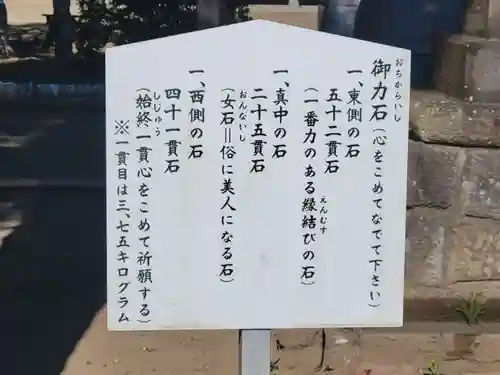 御力石(心をこめてなでて下さい)
おちからいし
一、東側の石
五十二貫石
(一番力のある縁結びの石)
えんむす
一、真中の石
二十五貫石
(女石=俗に美人になる石)
おんないし
一、西側の石
四十一貫石
(始終一貫心をこめて祈願する)
しじゅう
※一貫目は三、七五キログラム